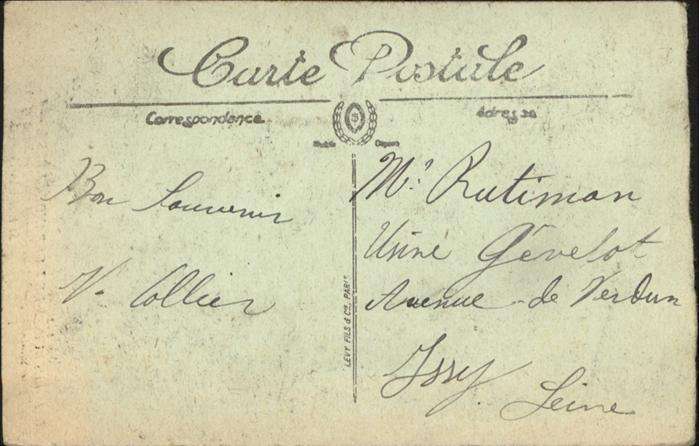 Carte Postale
Correspondance
Adresse
Bon Souvenir
V. Collier
Mr Rutiman
Usine Gévelot
Avenue de Verdun
Issy
Seine
LEVY FILS & Cie, PARIS